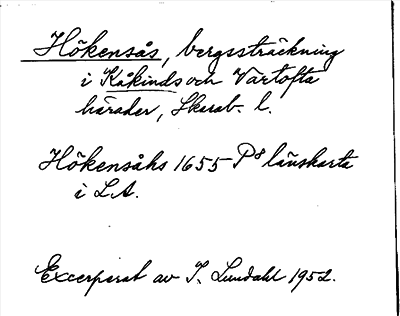 Hökensås, bergssträckning
i Kåkinds och Vartofta
härader, Skarab. l.
Hökensåhs 1655 P⁸ länskarta
i LA.
Excerperat av I. Lundahl 1952.